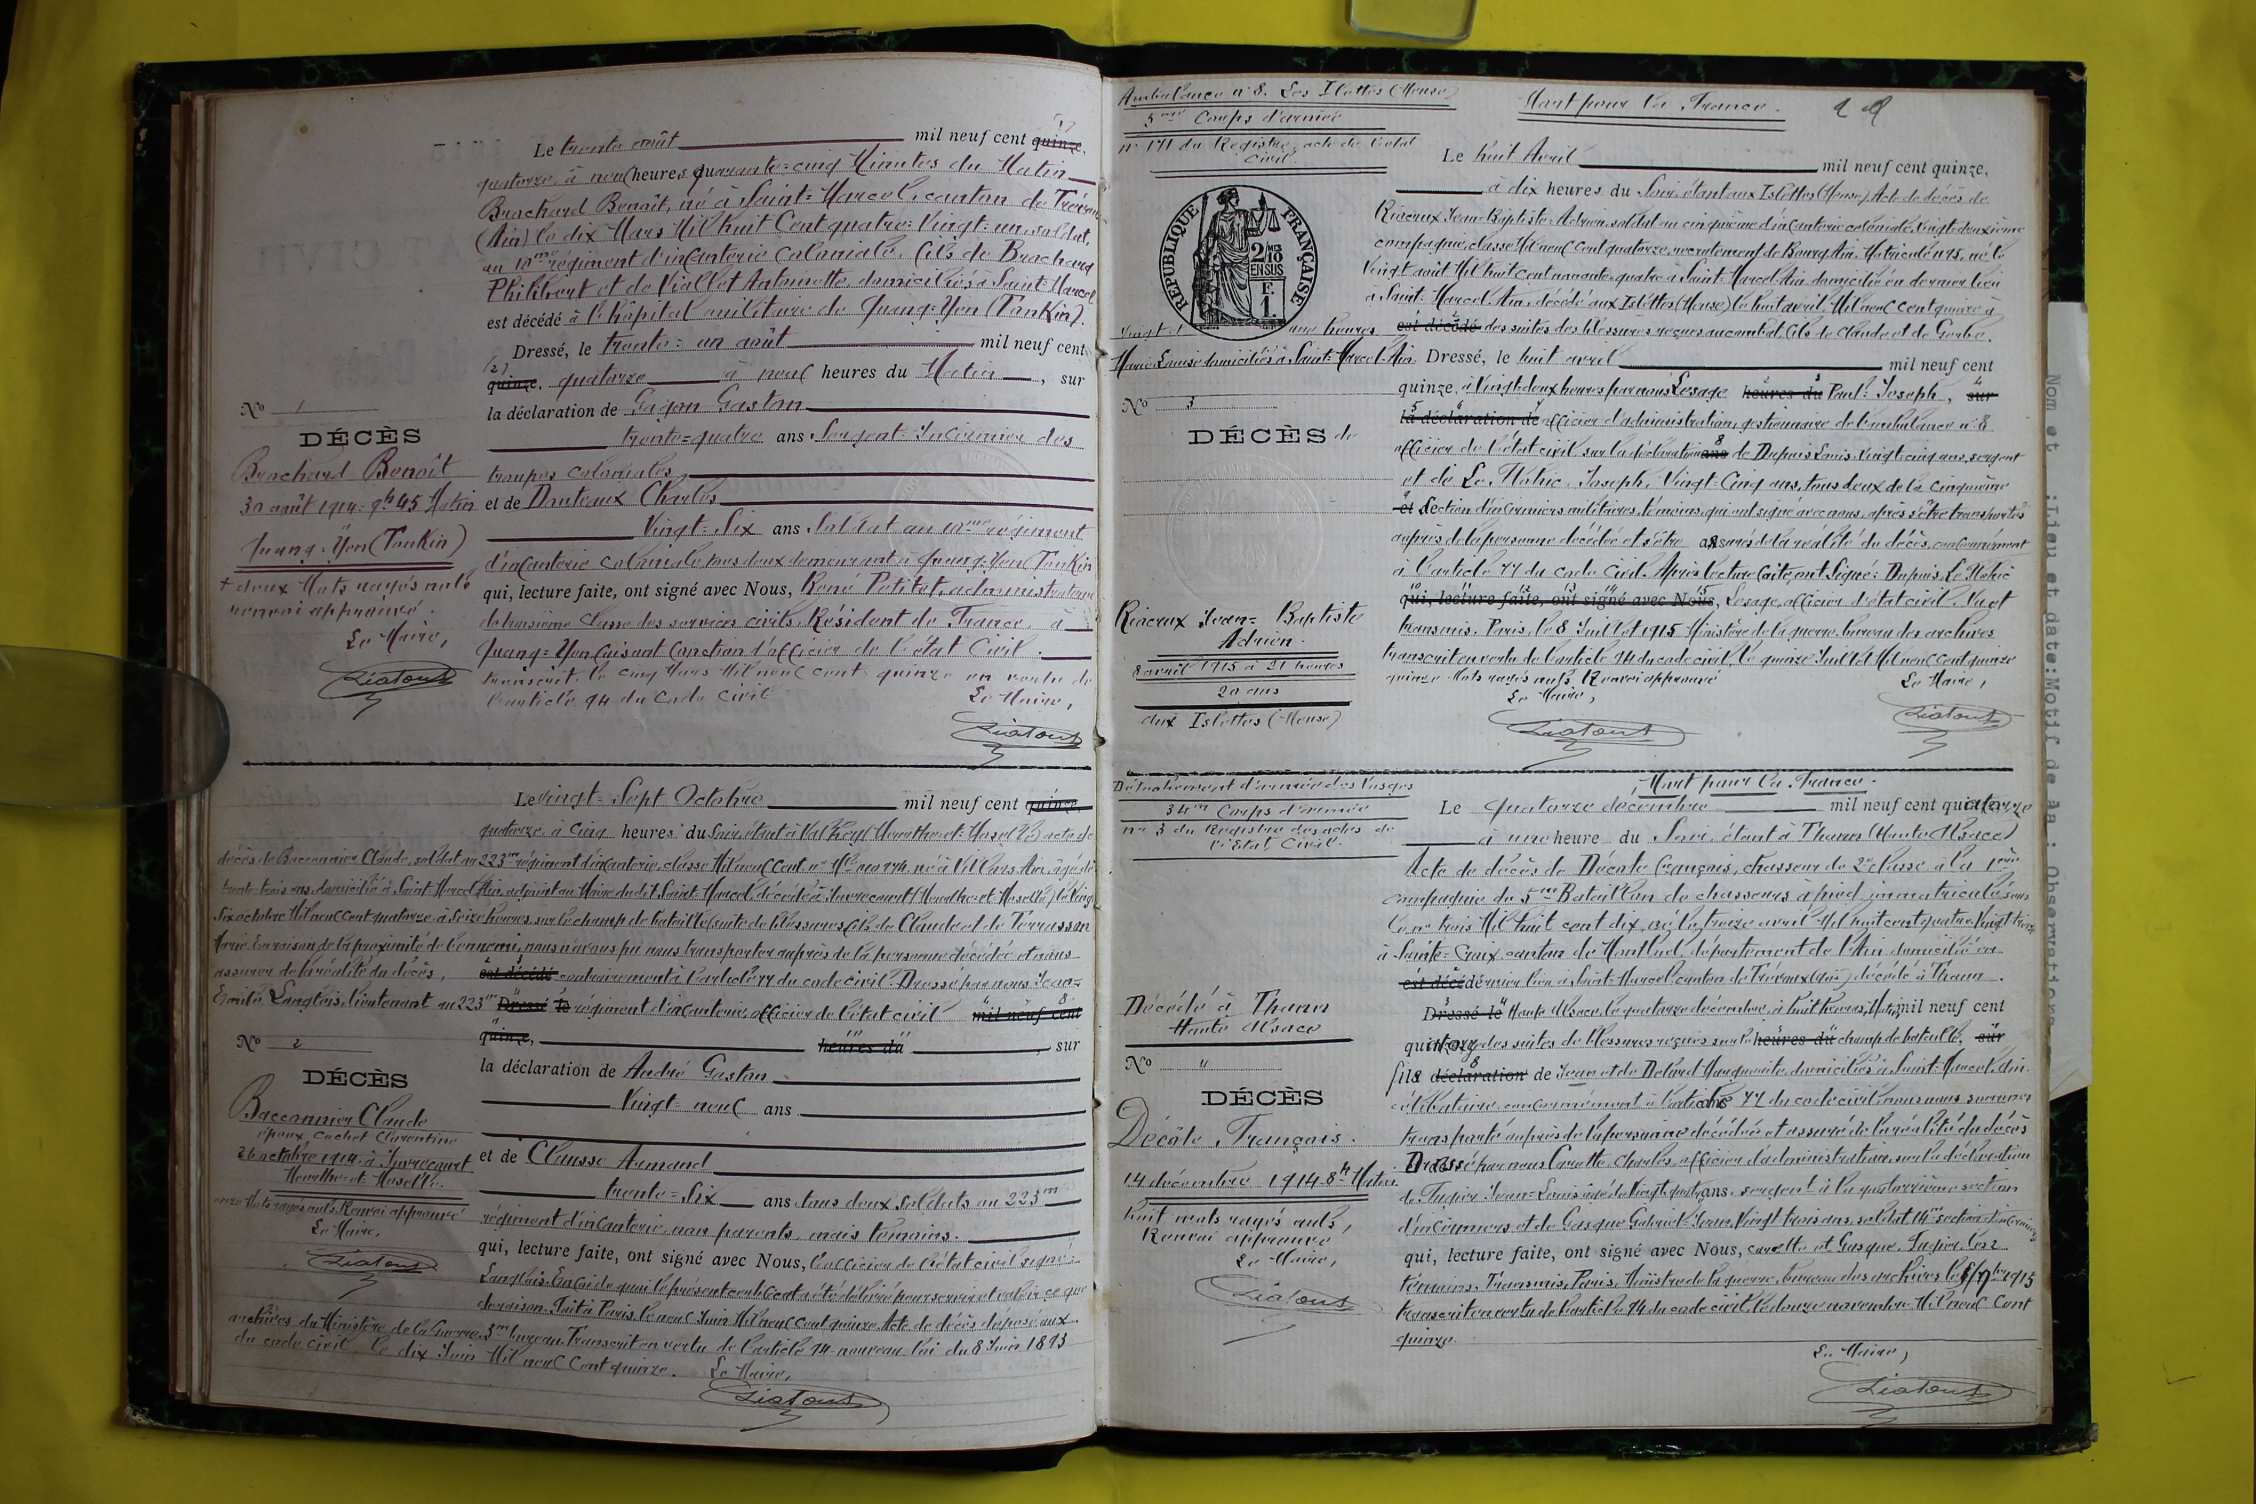 Le trente août mil neuf cent quinze.
quatorze, à neuf heures quarante=cinq Minutes du Matin
Brachard Benoît, né à Saint=Marcel, canton de Trévoux
(Ain) le dix Mars Mil huit Cent quatre=Vingt=un, soldat,
au 10me régiment d'infanterie coloniale, fils de Brachard
Philibert et de Viallet Antoinette domiciliés à Saint=Marcel
est décédé à l'hôpital militaire de Quang=Yen (Tonkin).
Dressé, le trente=un août mil neuf cent
quinze. quatorze à neuf heures du Matin, sur
la déclaration de Gagon Gaston
trente=quatre ans Sergent=Infirmier des
troupes coloniales
et de Dauteaux Charles
Vingt=Six ans Soldat au 10me régiment
d'infanterie coloniale tous deux demeurant à Quang=Yen (Tonkin
qui, lecture faite, ont signé avec Nous, René Petitet, administrateur
de troisième classe des services civils, Résident de France, à
Quang=Yen faisant fonction d'officier de l'état Civil.
transcrit, le cinq Mars Mil neuf cent quinze en vertu de
l'article 94 du Code civil
Le Maire,
Liatout
No 1
DÉCÈS
Brachard Benoît
30 août 1914=9h45 Matin
Quang=Yen (Tonkin)
+ deux Mots rayés nuls
renvoi approuvé.
Le Maire,
Liatout
Le vingt=Sept Octobre mil neuf cent quinze
quatorze à cinq heures du Soir, étant à Valhey (Meurthe=et=Moselle) acte de
décès de Baconnier Claude, soldat au 223me régiment d'infanterie, classe Mil neuf Cent né à Villars Ain, âgé de
trente=trois ans, domicilié à Saint Marcel Ain, adjoint au Maire du dit Saint=Marcel, décédé à (Meurthe=et=Moselle) le Vingt
Six octobre Mil neuf cent quatorze à Seize heures, sur le champ de bataille (suite de blessures) fils de Claude et de Terrasson
Marie. En raison de la proximité de l'ennemi, nous n'avons pu nous transporter auprès de la personne décédée et nous
assurer de la réalité du décès, est décédé contrairement à l'article 77 du code civil. Dressé par nous Jean=
Emile Langlois, lieutenant au 223me Dressé le régiment d'infanterie, officier de l'état civil mil neuf cent
quinze, heures du, sur
la déclaration de André Gaston
Vingt=neuf ans
et de Clausse Armand
trente=Six ans tous deux soldats au 223me
régiment d'infanterie, non parents, mais témoins.
qui, lecture faite, ont signé avec Nous, l'officier de l'état civil signé:
Langlois. En foi de quoi le présent certificat a été délivré pour servir et valoir ce que
de raison. Fait à Paris, le neuf Juin Mil neuf cent quinze. Acte de décès déposé aux
archives du Ministère de la Guerre, 3me bureau. Transcrit en vertu de l'article 94 nouveau loi du 8 Juin 1893
du code civil, le dix Juin Mil neuf Cent quinze. Le Maire,
Liatout
No 2
DÉCÈS
Baconnier Claude
époux Cachet Clarentine
26 octobre 1914 à
Meurthe=et=Moselle.
onze Mots rayés nuls. Renvoi approuvé
Le Maire,
Liatout
Ambulance n°8. Les Islettes (Meuse)
5me Corps d'armée
n° 171 du Registre, acte de l'état
Civil.
Mort pour la France.
RÉPUBLIQUE FRANÇAISE
2/10 EN SUS
Le huit Avril mil neuf cent quinze,
à dix heures du Soir, étant aux Islettes (Meuse) Acte de décès de
Riveaux Jean=Baptiste=Adrien, soldat au cinquième d'infanterie coloniale, vingt=deuxième
compagnie, classe Mil neuf Cent quatorze, recrutement de Bourg Ain, Matricule n°95, né le
Vingt août Mil huit cent nonante=quatre à Saint=Marcel Ain domicilié en dernier lieu
à Saint=Marcel Ain, décédé aux Islettes (Meuse) le huit avril Mil neuf Cent quinze à
vingt et une heures est décédé des suites des blessures reçues au combat, fils de Claude et de Gerbe,
Marie Louise domiciliés à Saint=Marcel=Ain Dressé, le huit avril mil neuf cent
quinze, à Vingt=deux heures par nous Lesage heures du Paul=Joseph, sur
la déclaration de officier d'administration gestionnaire de l'ambulance n°8
officier de l'état civil sur la déclaration ans de Dupuis Louis, vingt cinq ans, sergent
et de Le Flohic, Joseph, Vingt=Cinq ans, tous deux de la cinquième
et section d'infirmiers militaires, témoins qui ont signé avec nous, après s'être transportés
auprès de la personne décédée et s'être assurés de la réalité du décès, conformément
à l'article 77 du code civil. Après lecture faite, ont Signé: Dupuis, Le Flohic
qui, lecture faite, ont signé avec Nous, Lesage, officier d'état civil. Vu et
transmis. Paris, le 8 Juillet 1915 Ministère de la guerre, bureau des archives
transcrit en vertu de l'article 94 du code civil, le quinze Juillet Mil neuf cent quinze
quinze Mots rayés nuls Renvoi approuvé
Le Maire,
Liatout
Le Maire,
Liatout
No 3
DÉCÈS de
Riveaux Jean=Baptiste
Adrien.
8 avril 1915 à 21 heures
20 ans
aux Islettes (Meuse)
Détachement d'armée des Vosges
34me Corps d'armée
n° 3 du Registre des actes de
l'Etat Civil.
Mort pour la France.
Le quatorze décembre mil neuf cent quatorze
à une heure du Soir, étant à Thann (Haute Alsace)
Acte de décès de Décote François, chasseur de 2e classe à la 1ère
compagnie du 5me Bataillon de chasseurs à pied, immatriculé sous
le n° trois Mil huit cent dix, né le treize avril Mil huit cent quatre Vingt treize
à Sainte=Croix canton de Montluel, département de l'Ain domicilié en
est décédé dernier lieu à Saint Marcel canton de Trévoux (Ain) décédé à Thann
Dressé le Haute Alsace le quatorze décembre, à huit heures, Matin mil neuf cent
quatorze des suites de blessures reçues sur le heures du champ de bataille, sur
fils déclaration de Jean et de Delord Marguerite domiciliés à Saint=Marcel, Ain.
célibataire conformément à l'article 77 du code civil, nous nous sommes
transporté auprès de la personne décédée et assuré de la réalité du décès
Dressé par nous Carotte Charles, officier d'administration, sur la déclaration
de Tupin Jean=Louis âgé de Vingt quatre ans, sergent à la quatorzième section
d'infirmiers et de Gasque Gabriel=Jean, Vingt trois ans, soldat 14me section d'infirmiers
qui, lecture faite, ont signé avec Nous, Carotte et Gasque, Tupin les 2
témoins. Transmis, Paris, Ministre de la guerre, bureau des archives le 1915
transcrit en vertu de l'article 94 du code civil, le douze novembre Mil neuf Cent
quinze.
Le Maire,
Liatout
Décédé à Thann
Haute Alsace
No "
DÉCÈS
Décôte, François.
14 décembre 1914=8h Matin.
huit mots rayés nuls,
Renvoi approuvé
Le Maire,
Liatout
Nom et :Lieu et date:Motif de la : Observations